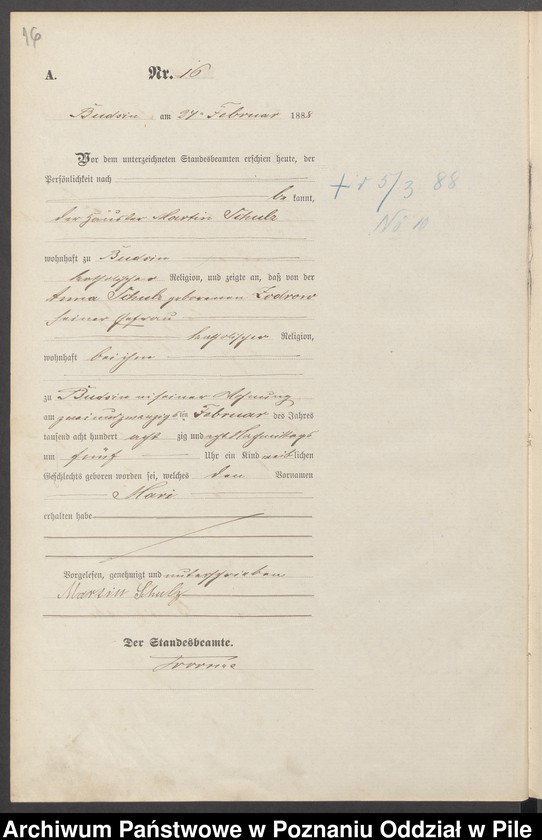 16
A. Nr. 16
Budsin am 24n Februar 1888
Vor dem unterzeichneten Standesbeamten erschien heute, der
Persönlichkeit nach
be kannt,
der Häusler Martin Schulz
wohnhaft zu Budsin
katholischer Religion, und zeigte an, daß von der
Anna Schulz geborenen Zodrow
seiner Ehefrau
katholischer Religion,
wohnhaft bei ihm
zu Budsin in seiner Wohnung
am zweiundzwanzigsten Februar des Jahres
tausend acht hundert acht zig und acht Nachmittags
um fünf Uhr ein Kind weiblichen
Geschlechts geboren worden sei, welches den Vornamen
Mari
erhalten habe
Vorgelesen, genehmigt und unterschrieben
Martin Schulz
Der Standesbeamte.
+ d 5/3 88
No 10
Archiwum Państwowe w Poznaniu Oddział w Pile